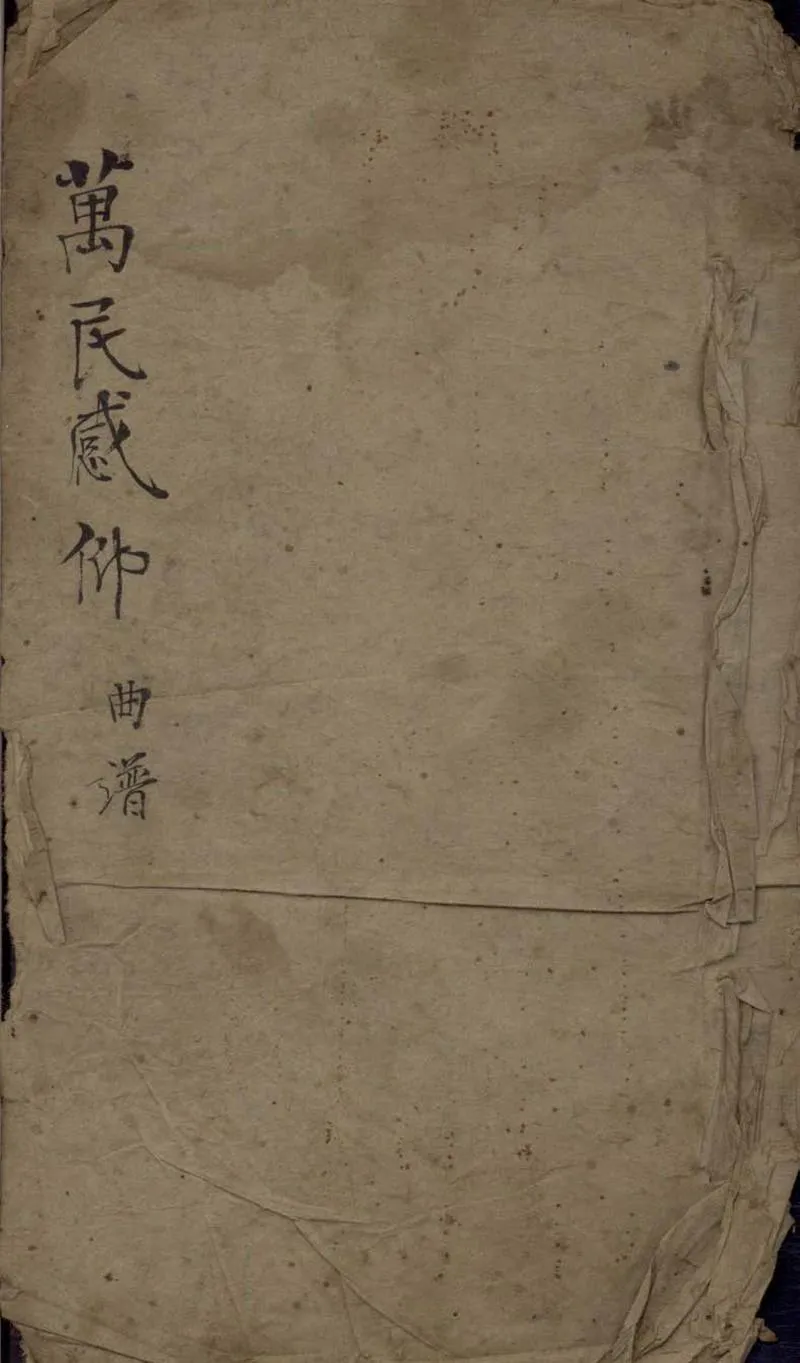 萬民感仰 曲譜